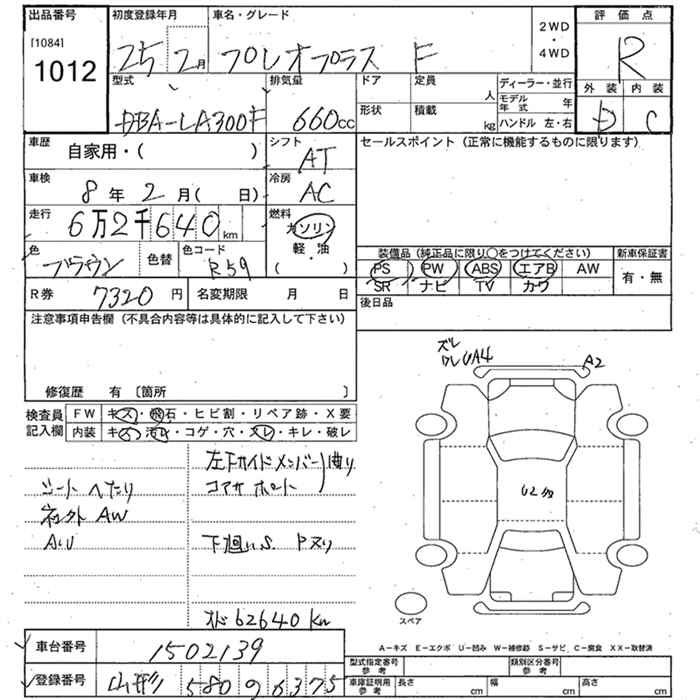 出品番号 初度登録年月 車名・グレード 2WD・4WD 評価点
[1084] 1012 25 2月 プレオプラス F R
型式 排気量 ドア 定員 人 ディーラー・並行 外装 内装
DBA-LA300F 660cc 形状 積載 kg モデル年式 年 ハンドル 左・右 D C
車歴 自家用・( ) シフト AT セールスポイント (正常に機能するものに限ります)
車検 8年 2月( 日) 冷房 AC
走行 6万2千640km 燃料 ガソリン・軽・油 ( )
色 ブラウン 色替 色コード R59
装備品 (純正品に限り○をつけてください) 新車保証書
PS PW ABS エアB AW 有・無
SR ナビ TV カワ
R券 7320円 名変期限 月 日 後日品
注意事項申告欄 (不具合内容等は具体的に記入して下さい)
修復歴 有 〔箇所 〕
ズレ
ワレUA4 A2
U2多
検査員記入欄 FW キズ・飛石・ヒビ割・リペア跡・X要
内装 キズ・汚れ・コゲ・穴・スレ・キレ・破レ
左下サイドメンバー 曲り
シートへたり コアサポート
ネクスト AW
AU 下廻りS. Pヌリ
スペア
オド62640Km
A-キズ E-エクボ U-凹み W-補修跡 S-サビ C-腐食 XX-取替済
車台番号 1502139
登録番号 山形 580 9 6375
型式指定番号 参考 類別区分番号 参考
車庫証明用 参考 長さ cm 幅 cm 高さ cm